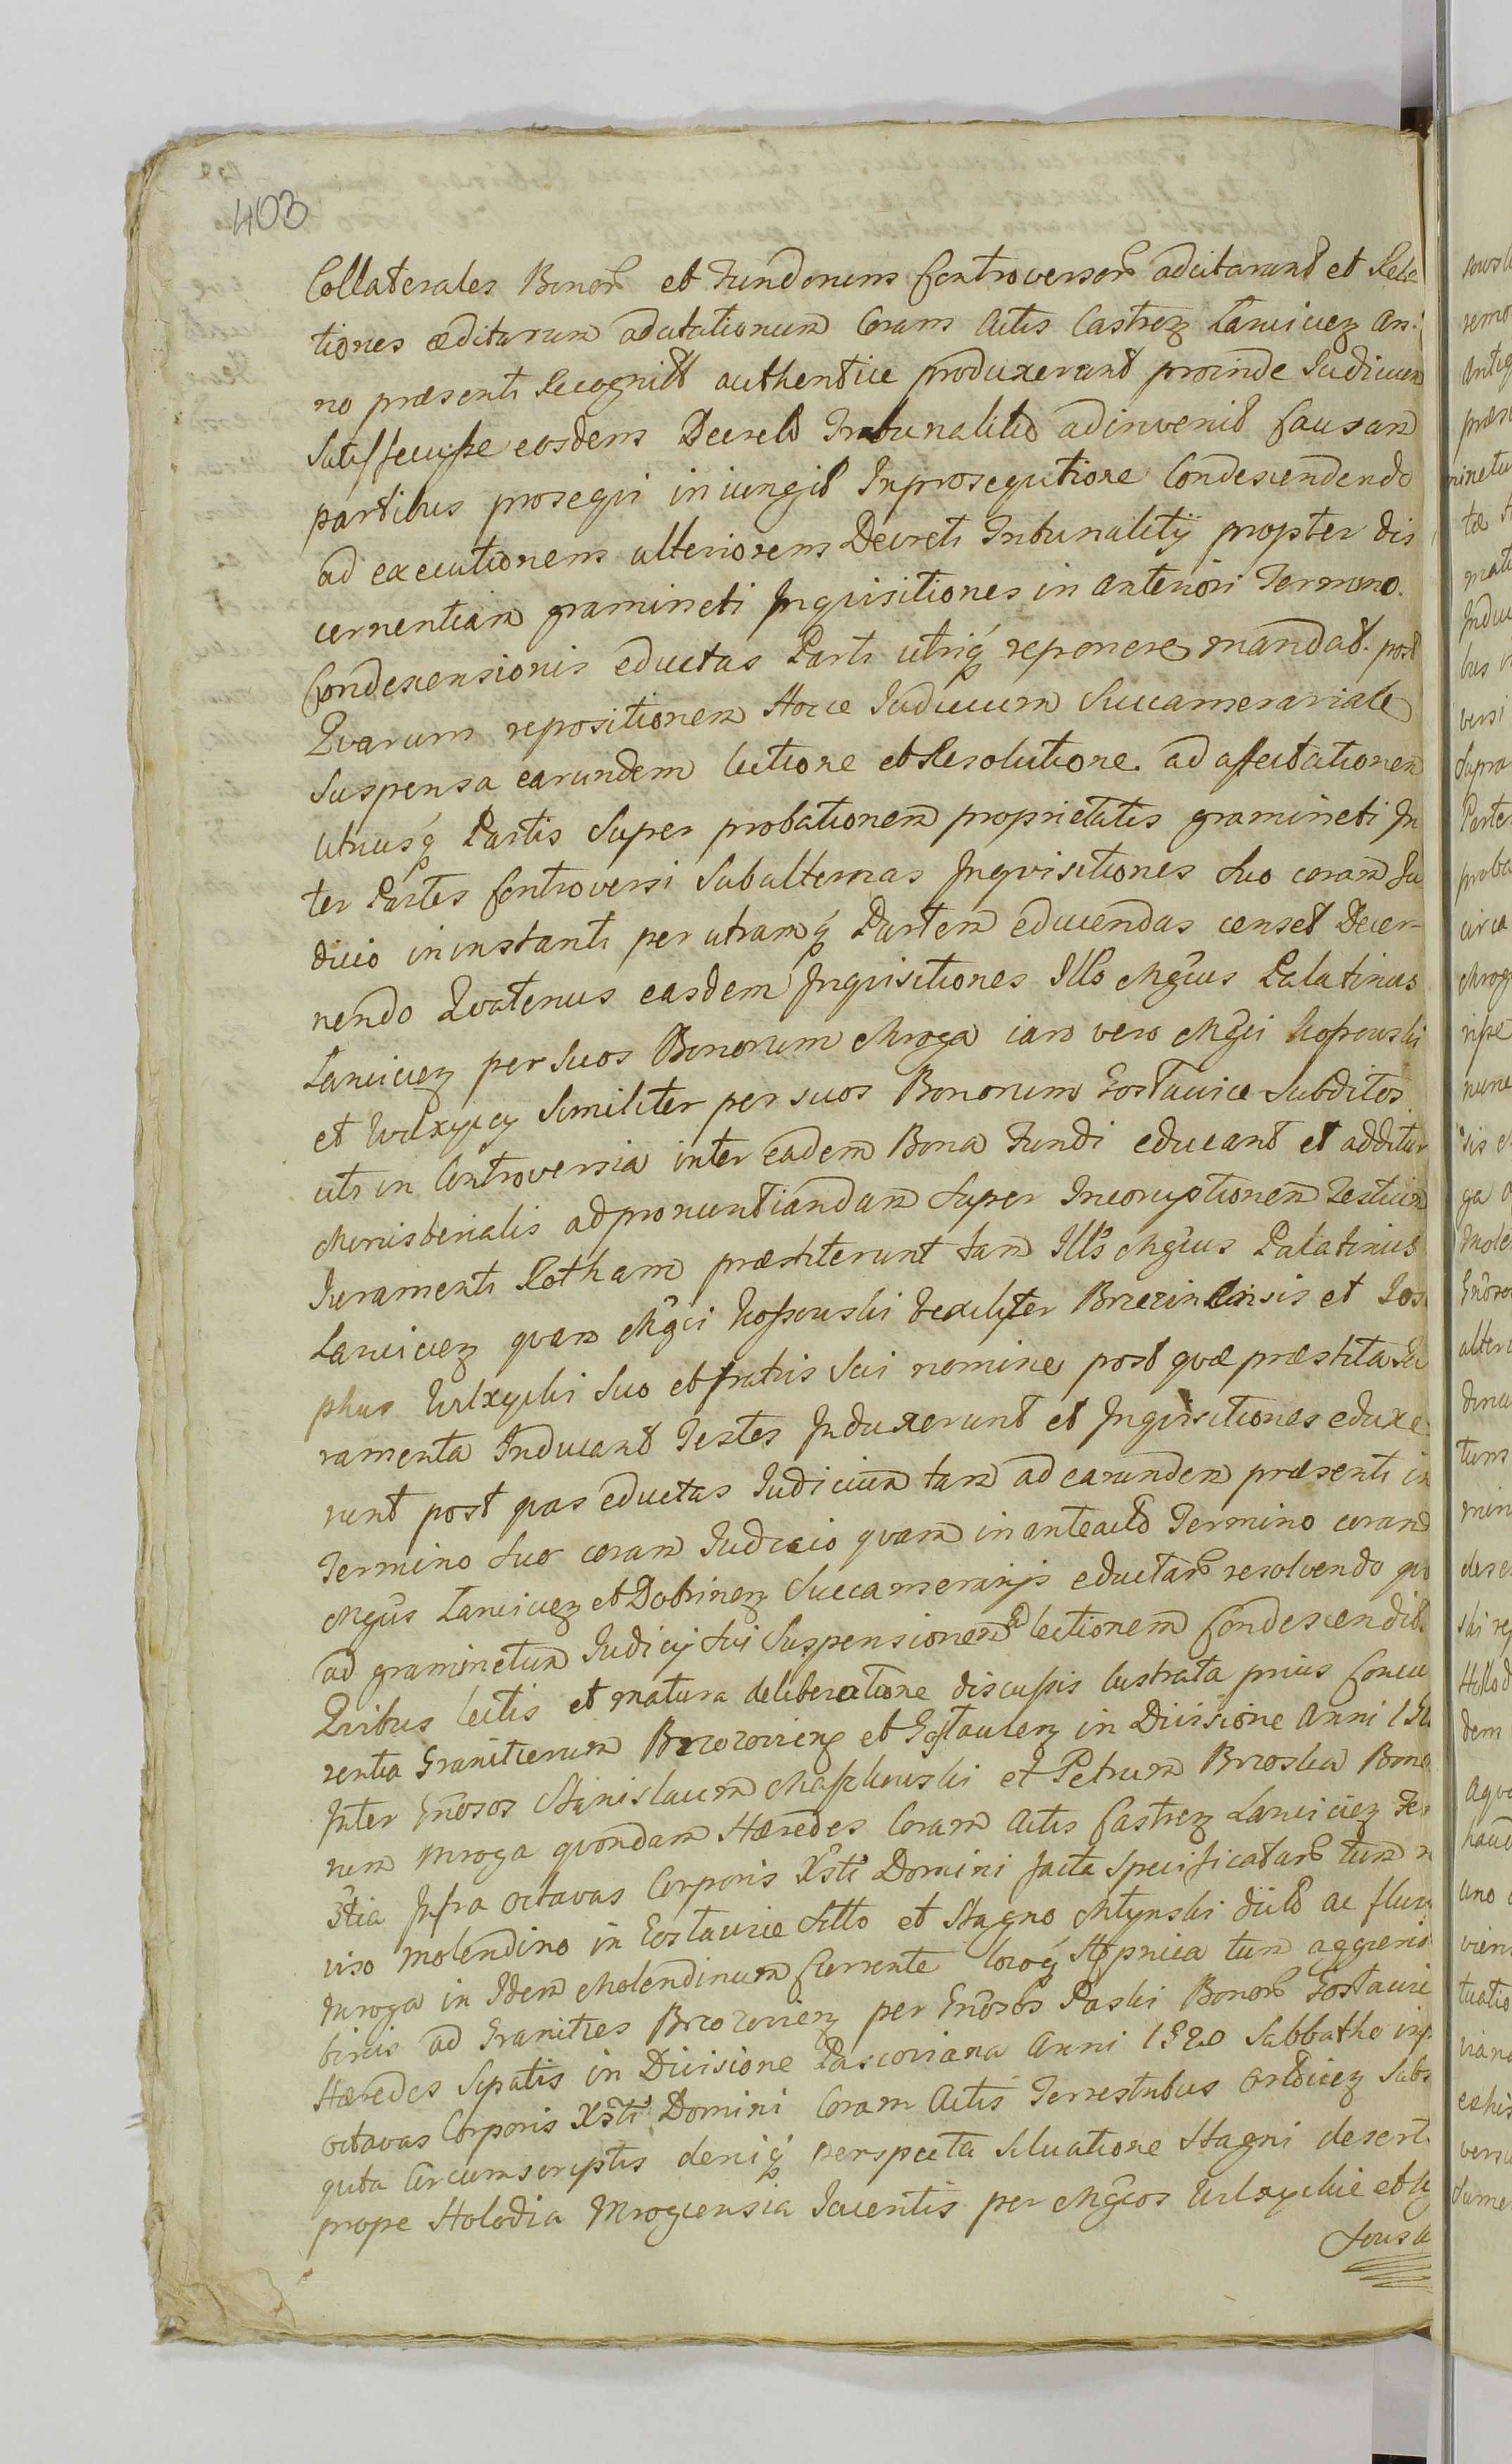 403
Collaterales Bonor et Fundorum Controversor adcitarunt et Rela
tiones æditarum adcitationum Coram Actis Castreз Lanciciez An:
no præsenti Recognitt authentice produxerunt proinde Judicium
Satisfecisse eosdem Decreto Tribunalitio adinvenit Causam
partibus prosequi iniungit Inprosequtione Condescendendo
ad executionem ulteriorem Decreti Tribunalitij propter dis
cernentiam gramineti Inqvisitiones in anteriori Termino.
Condescensionis eductas Parti utriq reponere mandat. post
Qvarum repositionem Hocce Judicium Succamerariale
Suspensa earundem lectione et Resolutione. ad affectationem
utriusq Partis Super probationem proprietatis gramineti In
ter Partes Controversi Subalternas Inqvisitiones Suo coram Ju
dicio ininstanti per utramq Partem educendas censet Decer-
nendo Qvatenus easdem Inqvisitiones Ills Mgcus Palatinus
Lanciciez per Suos Bonorum Mroga iam vero Mgci Kossowski
et Wilxyccy Similiter per suos Bonorum Gostawice Subditos
uti in Controversia inter eadem Bona Fundi educant et additur
Ministerialis adpronuntiandam Super Incoruptionem Testium
Juramenti Rotham præstiterunt tam Ills Mgcus Palatinus
Lanciciez qvam Mgci Kossowski Vexilifer Brzezinensis et Jose
phus Wilxycki Suo et fratris Sui nomine post qvæ præstita Ju
ramenta Inducant Testes Induxerunt et Inqvisitiones eduxe
runt post qvas eductas Judicium tam ad earundem præsenti in
Termino Suo coram Judicio qvam in anteacto Termino coram
Mgcis Lanciciez et Dobrinez Succamerarijs eductar resolvendo qvo
ad graminetum Judicij Sui Suspensionem ad lectionem Condescendit.
Qvibus lectis et matura deliberatione discussis lustrata prius Concur
rentia Granitierum Brzozoviez et Gostaviez in Divisione Anni
Inter Gnosos Stanislaum Maszkowski et Petrum Brzoska Bono
rum Mroga qvondam Hæredes Coram Actis Castrez Lanciciez Fer
3tia Infra octavas Corporis Xsti Domini facta Specificatar tum
viso molendino in Gostawice Sitto et Stagno Mlynski dicto ac fluvio
Mroga in Idem Molendinum Currente locoq Stpnica tum aggeri
binis ad Granities Brzozoviez per Gnosos Paski Bonor Gostawice
Hæredes Sipatis in Divisione Pascoviana Anni 1520 Sabbatho inf
octavas Corporis Xsti Domini Coram Actis Terrestribus Orloviez Subs
quta Circumscriptis deniq perspecta Situatione Stagni deserti
prope Holodia Mrogensia Jacentis per Mgcos Wilxyckie et